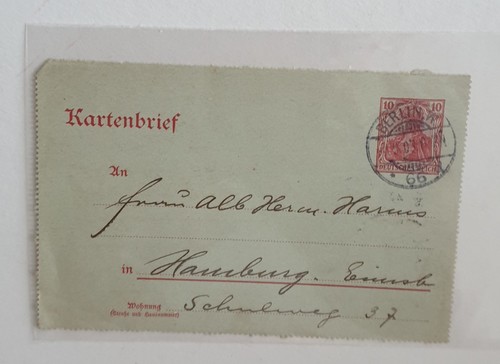 10 10
BERLIN
Kartenbrief
DEUTSCHES REICH
66
An
Frau Alb Herm. Harms
in Hamburg. Eimsb
Wohnung
(Straße und Hausnummer)
Schulweg 37